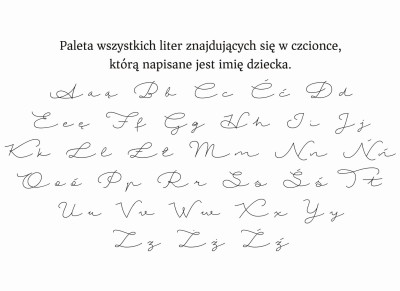 Paleta wszystkich liter znajdujących się w czcionce,
którą napisane jest imię dziecka.
A a ą B b C c Ć ć D d
E e ę F f G g H h I i J j
K k L l Ł ł M m N n Ń ń
O o ó P p R r S s Ś ś T t
U u V v W w X x Y y
Z z Ż ż Ź ź